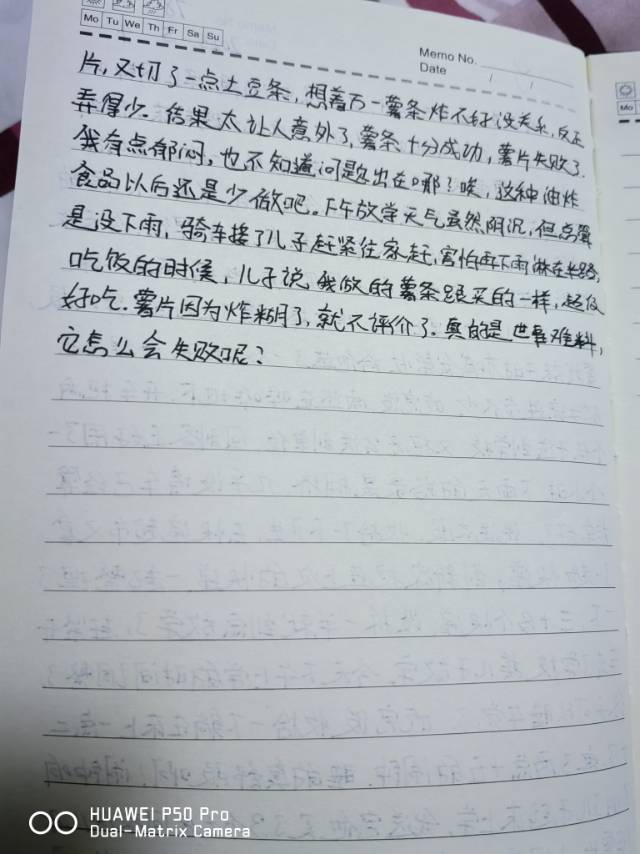 Mo Tu We Th Fr Sa Su
Memo No.
Date / /
Mo
片,又切了一点土豆条,想着万一薯条炸不好没关系,反正
弄得少。结果太让人意外了,薯条十分成功,薯片失败了.
我有点郁闷,也不知道问题出在哪?唉,这种油炸
食品以后还是少做吧。下午放学天气虽然阴沉,但总算
是没下雨,骑车接了儿子赶紧往家赶,害怕再下雨淋在半路,
吃饭的时候,儿子说我做的薯条跟买的一样,超级
好吃.薯片因为炸糊了,就不评价了.真的是世事难料,
它怎么会失败呢?
HUAWEI P50 Pro
Dual-Matrix Camera